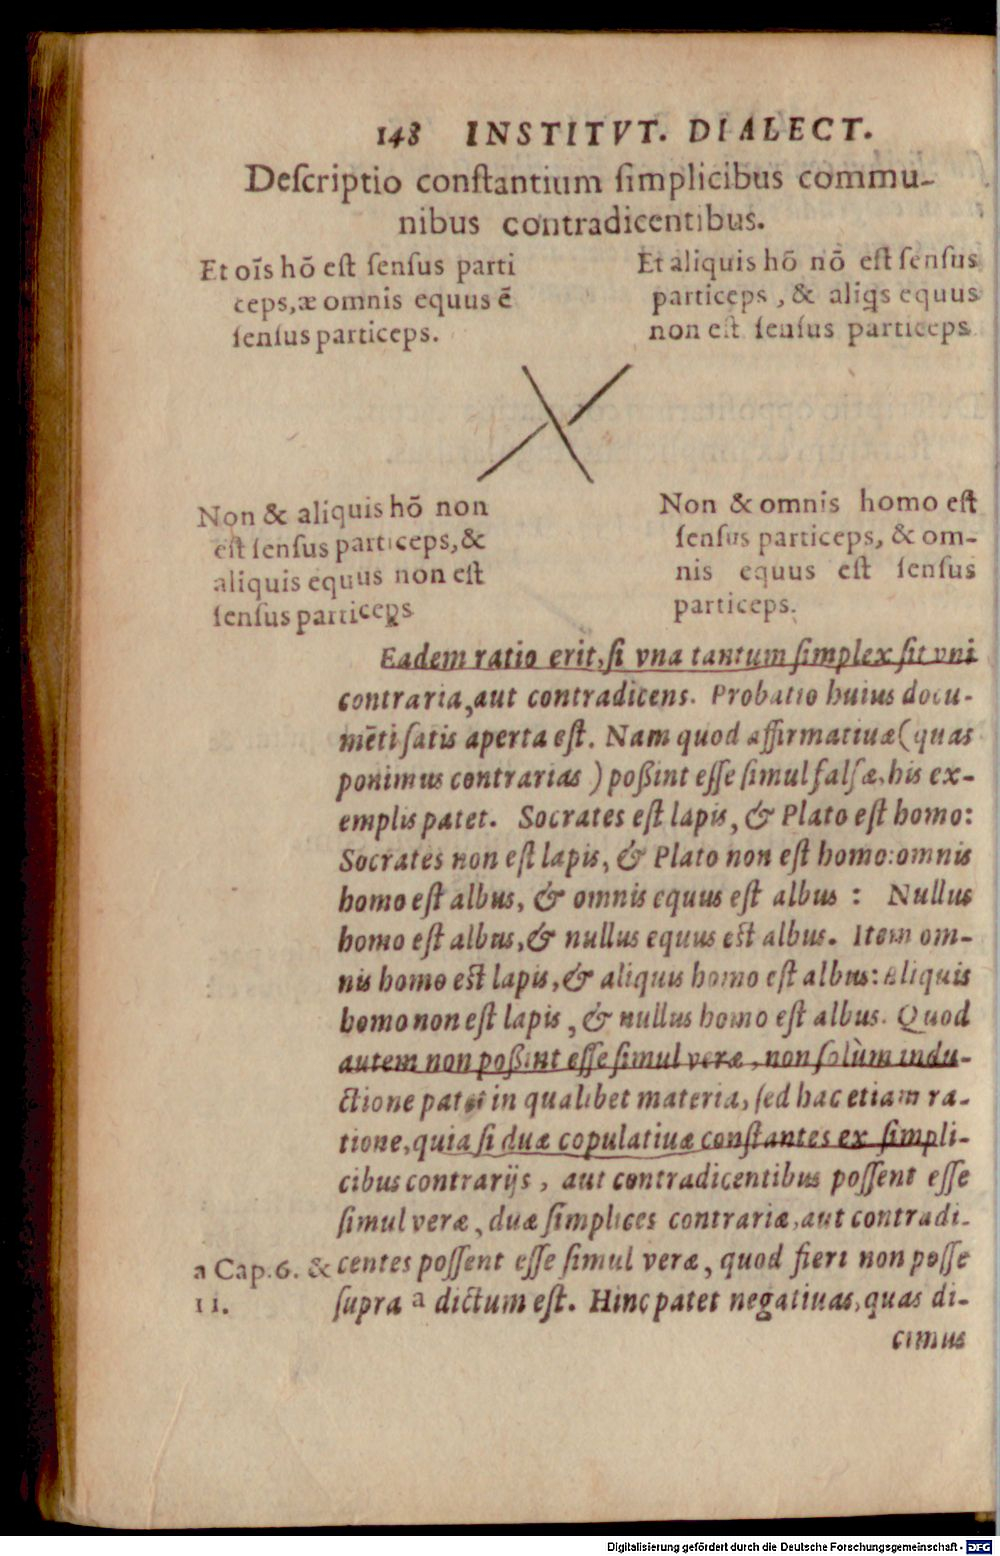 148 INSTITVT. DIALECT.
Deſcriptio conſtantium ſimplicibus commu-
nibus contradicentibus.
Et oīs hō eſt ſenſus parti
ceps, æ omnis equus ē
ſenſus particeps.
Et aliquis hō nō eſt ſenſus
particeps, & aliqs equus
non eſt ſenſus particeps
Non & aliquis hō non
eſt ſenſus particeps, &
aliquis equus non eſt
ſenſus particeps
Non & omnis homo eſt
ſenſus particeps, & om-
nis equus eſt ſenſus
particeps.
Eadem ratio erit, ſi vna tantum ſimplex ſit vni
contraria, aut contradicens. Probatio huius docu-
mēti ſatis aperta eſt. Nam quod affirmatiuæ (quas
ponimus contrarias) poßint eſſe ſimul falſæ, his ex-
emplis patet. Socrates eſt lapis, & Plato eſt homo:
Socrates non eſt lapis, & Plato non eſt homo: omnis
homo eſt albus, & omnis equus eſt albus : Nullus
homo eſt albus, & nullus equus eſt albus. Item om-
nis homo eſt lapis, & aliquis homo eſt albus: aliquis
homo non eſt lapis, & nullus homo eſt albus. Quod
autem non poßint eſſe ſimul veræ, non ſolùm indu-
ctione patet in qualibet materia, ſed hac etiam ra-
tione, quia ſi duæ copulatiuæ conſtantes ex ſimpli-
cibus contrarijs, aut contradicentibus poſſent eſſe
ſimul veræ, duæ ſimplices contrariæ, aut contradi-
centes poſſent eſſe ſimul veræ, quod fieri non poſſe
ſupra a dictum eſt. Hinc patet negatiuas, quas di-
a Cap. 6. &
11.
cimus
Digitalisierung gefördert durch die Deutsche Forschungsgemeinschaft - DFG